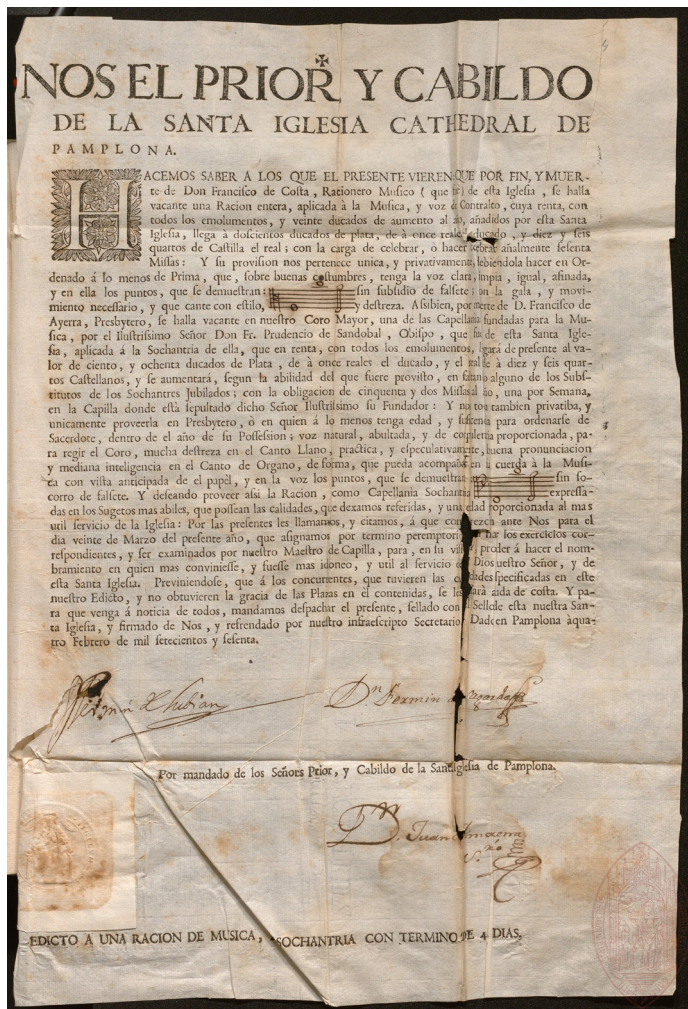 NOS EL PRIOR, Y CABILDO
DE LA SANTA IGLESIA CATHEDRAL DE
PAMPLONA.
HACEMOS SABER A LOS QUE EL PRESENTE VIEREN QUE POR FIN, Y MUER-
te de Don Francisco de Costa, Racionero Musico (que fue) de esta Iglesia, se halla
vacante una Racion entera, aplicada à la Musica, y voz de Contralto, cuya renta, con
todos los emolumentos, y veinte ducados de aumento al año, añadidos por esta Santa
Iglesia, llega à doscientos ducados de plata, de à once reales ducado, y diez y seis
quartos de Castilla el real; con la carga de celebrar, ò hacer celebrar añalmente sesenta
Missas: Y su provision nos pertenece unica, y privativamente, debiendola hacer en Or-
denado á lo menos de Prima, que, sobre buenas costumbres, tenga la voz clara, limpia, igual, afinada,
y en ella los puntos, que se demuestran: sin subsidio de falsete; con la gala, y movi-
miento necessario, y que cante con estilo, y destreza. Assibien, por muerte de D. Francisco de
Ayerra, Presbytero, se halla vacante en nuestro Coro Mayor, una de las Capellanias fundadas para la Mu-
sica, por el Ilustrissimo Señor Don Fr. Prudencio de Sandobal, Obispo, que fue de esta Santa Igle-
sia, aplicada á la Sochantria de ella, que en renta, con todos los emolumentos, llegará de presente al va-
lor de ciento, y ochenta ducados de Plata, de à once reales el ducado, y el real de à diez y seis quar-
tos Castellanos, y se aumentará, segun la abilidad del que fuere provisto, en faltando alguno de los Subs-
titutos de los Sochantres Jubilados; con la obligacion de cinquenta y dos Missas al año, una por Semana,
en la Capilla donde està sepultado dicho Señor Ilustrissimo su Fundador: Y nos toca tambien privatiba, y
unicamente proveerla en Presbytero, ò en quien á lo menos tenga edad, y suficiencia para ordenarse de
Sacerdote, dentro del año de su Possession; voz natural, abultada, y de corpulentia proporcionada, pa-
ra regir el Coro, mucha destreza en el Canto Llano, practica, y especulativamente, buena pronunciacion
y mediana inteligencia en el Canto de Organo, de forma, que pueda acompañar en la cuerda à la Musi-
ca con vista anticipada de el papel, y en la voz los puntos, que se demuestran sin so-
corro de falsete. Y deseando proveer assi la Racion, como Capellania Sochantria expressa-
das en los Sugetos mas abiles, que possean las calidades, que dexamos referidas, y una edad proporcionada al mas
util servicio de la Iglesia: Por las presentes les llamamos, y citamos, á que comparezcan ante Nos para el
dia veinte de Marzo del presente año, que asignamos por termino peremptorio los exercicios cor-
respondientes, y ser examinados por nuestro Maestro de Capilla, para, en su vista, proceder á hacer el nom-
bramiento en quien mas conviniesse, y fuesse mas idoneo, y util al servicio de Dios nuestro Señor, y de
esta Santa Iglesia. Previniendose, que á los concurientes, que tuvieren las calidades especificadas en este
nuestro Edicto, y no obtuvieren la gracia de las Plazas en el contenidas, se les dará aida de costa. Y pa-
ra que venga á noticia de todos, mandamos despachar el presente, sellado con el Sello de esta nuestra San-
ta Iglesia, y firmado de Nos, y refrendado por nuestro infraescripto Secretario. Dado en Pamplona à qua-
tro Febrero de mil setecientos y sesenta.
Dn. Fermin
Por mandado de los Señors Prior, y Cabildo de la Santa Iglesia de Pamplona.
Dn. Juan
EDICTO A UNA RACION DE MUSICA, SOCHANTRIA CON TERMINO DE 4 DIAS.